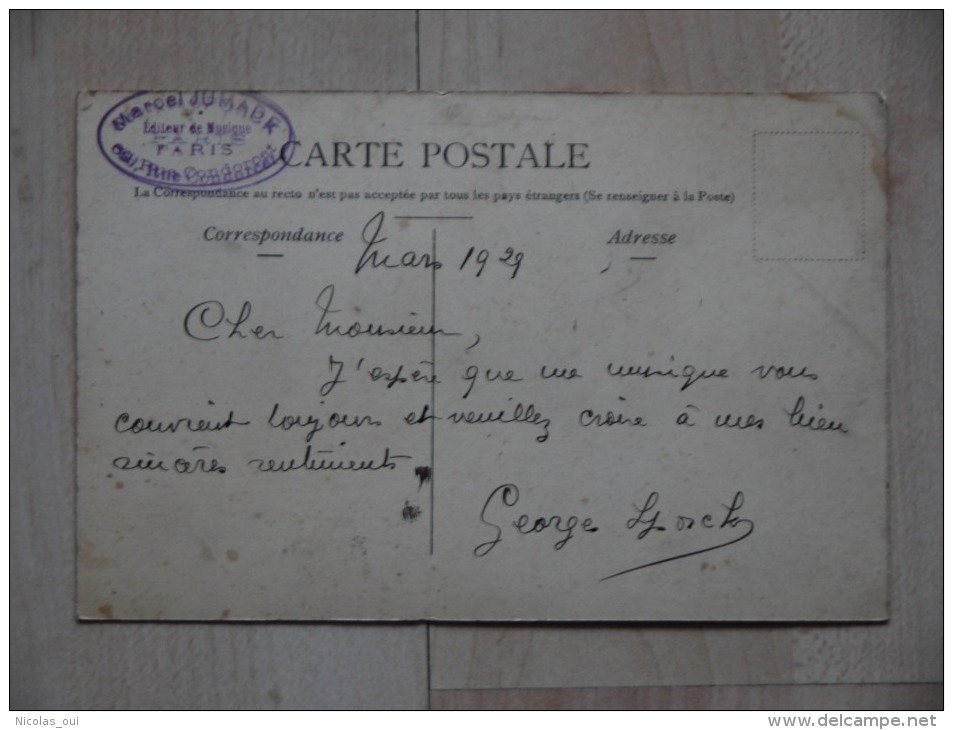 Marcel JUMADE
Éditeur de Musique
PARIS
69, Rue Condorcet
CARTE POSTALE
La Correspondance au recto n'est pas acceptée par tous les pays étrangers (Se renseigner à la Poste)
Correspondance
Adresse
Mars 1929
Cher Monsieur,
J'espère que ma musique vous
convient toujours et veuillez croire à mes bien
sincères sentiments
George
Nicolas_oui
www.delcampe.net